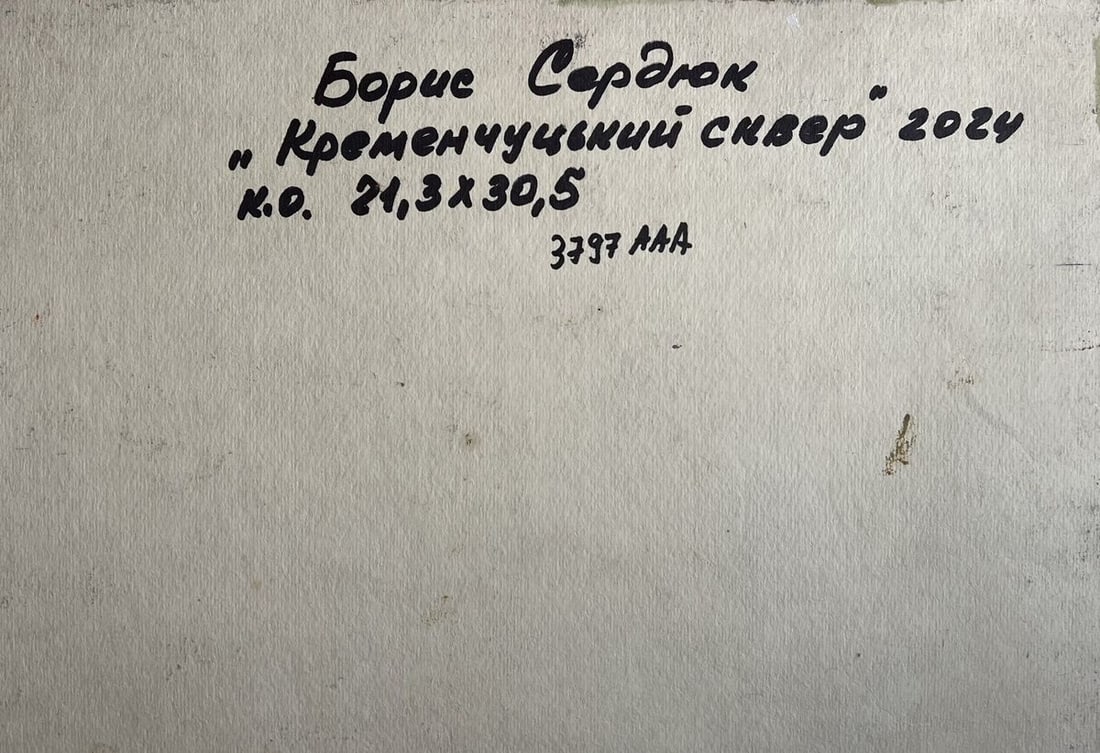 Борис Сердюк
„Кременчуцький сквер" 2024
к.о. 21,3х30,5
3797 ААА